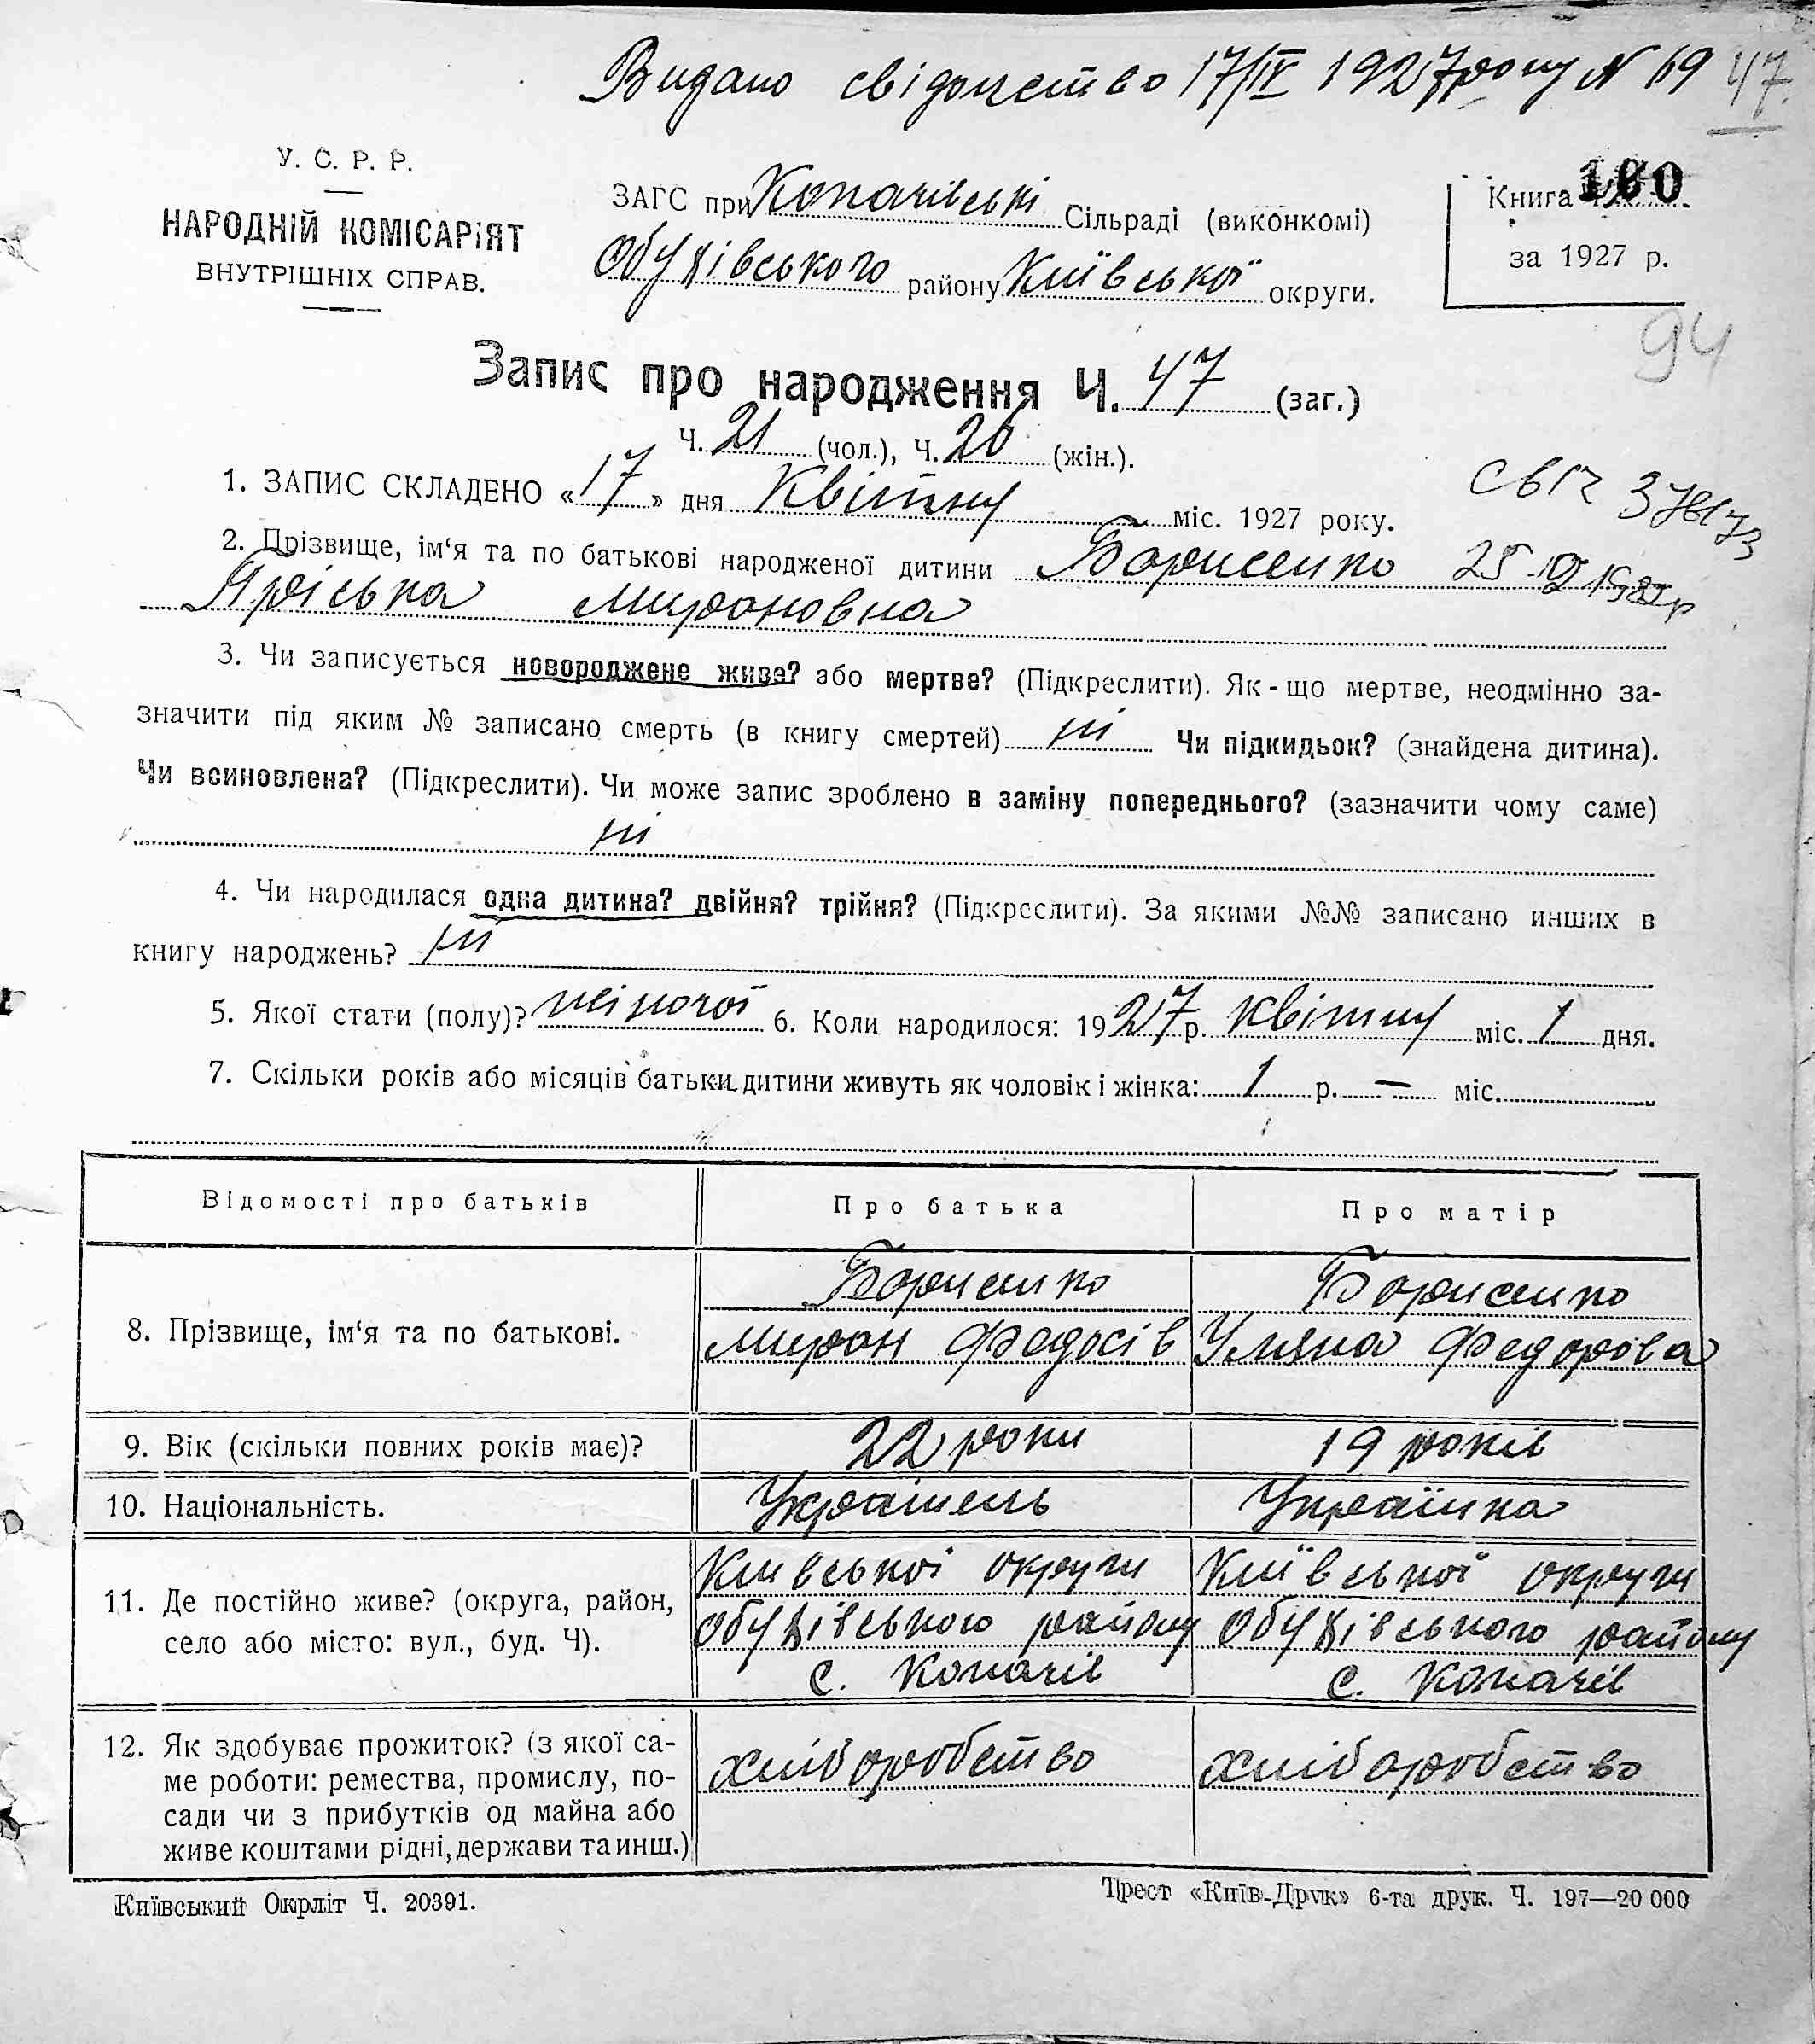 Видано свідоцтво 17/IV 1927 року N 69 47.
У. С. Р. Р.
НАРОДНІЙ КОМІСАРІЯТ
ВНУТРІШНІХ СПРАВ.
ЗАГС при Копачівські Сільраді (виконкомі)
Обухівського району Київської округи.
Книга
за 1927 р.
94
Запис про народження Ч. 47 (заг.)
Ч. 21 (чол.), Ч. 26 (жін.).
1. ЗАПИС СКЛАДЕНО «17» дня Квітну міс. 1927 року.
2. Прізвище, ім‘я та по батькові народженої дитини Борисенко
Яріська Мироновна
3. Чи записується новороджене живе? або мертве? (Підкреслити). Як-що мертве, неодмінно за-
значити під яким № записано смерть (в книгу смертей) ні Чи підкидьок? (знайдена дитина).
Чи всиновлена? (Підкреслити). Чи може запис зроблено в заміну попереднього? (зазначити чому саме)
ні
4. Чи народилася одна дитина? двійня? трійня? (Підкреслити). За якими №№ записано инших в
книгу народжень? ні
5. Якої стати (полу)? жіночої 6. Коли народилося: 1927 р. Квітну міс. 1 дня.
7. Скільки років або місяців батьки дитини живуть як чоловік і жінка: 1 р. — міс.
Відомості про батьків Про батька Про матір
8. Прізвище, ім‘я та по батькові.
Борисенко Борисенко
Мирон Федосів Уляна Федорова
9. Вік (скільки повних років має)? 22 роки 19 років
10. Національність. Українець Українка
11. Де постійно живе? (округа, район,
село або місто: вул., буд. Ч).
Киівської округи Київської округи
Обухівського району Обухівського району
с. Копачів с. Копачів
12. Як здобуває прожиток? (з якої са-
ме роботи: ремества, промислу, по-
сади чи з прибутків од майна або
живе коштами рідні, держави та инш.)
хліборобство хліборобство
Київський Окрліт Ч. 20391.
Трест «Київ-Друк» 6-та друк. Ч. 197—20 000